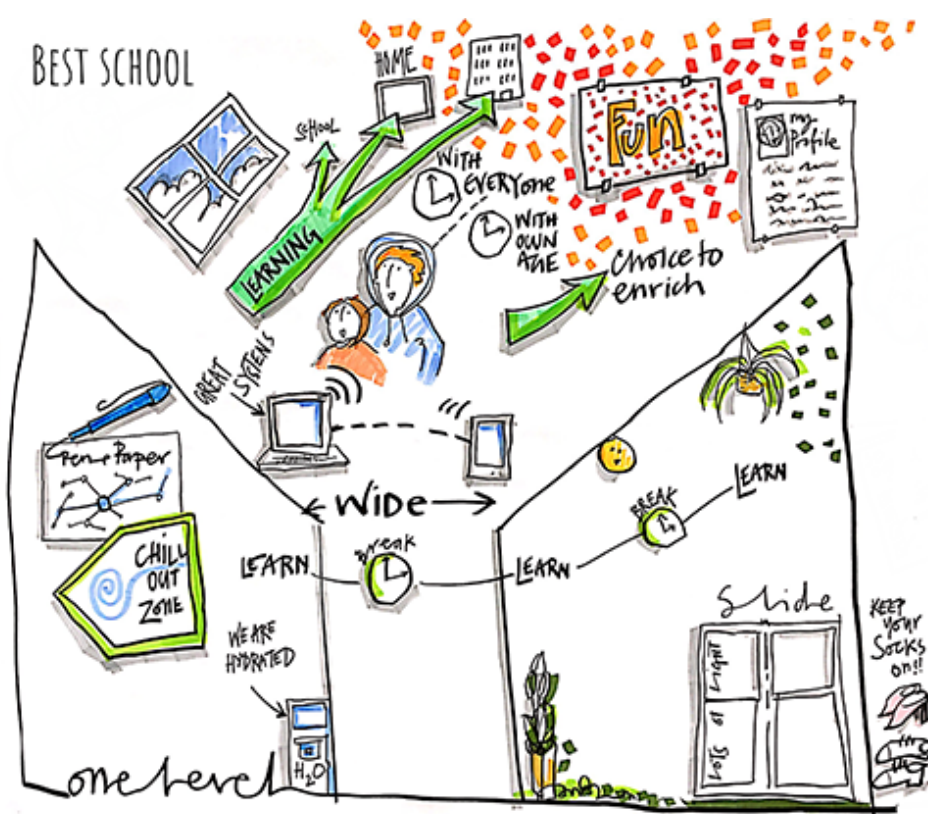 BEST SCHOOL
HOME
SCHOOL
LEARNING
WITH
EVERYONE
WITH
OWN
AGE
Fun
my
Profile
choice to
enrich
GREAT
SYSTEMS
Pen + Paper
WIDE
CHILL
OUT
ZONE
LEARN
Break
LEARN
BREAK
LEARN
WE ARE
HYDRATED
H2O
one Level
Slide
lots of light
KEEP
your
Socks
on!!